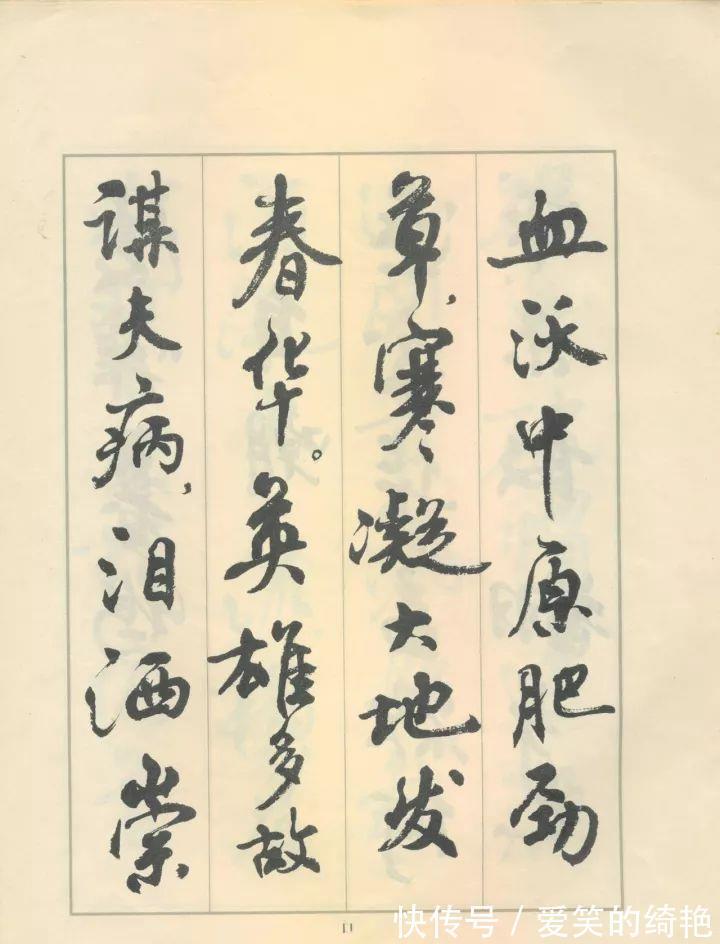 血沃中原肥劲
草,寒凝大地发
春华。英雄多故
谋夫病,泪洒崇
11
快传号 / 爱笑的绮艳